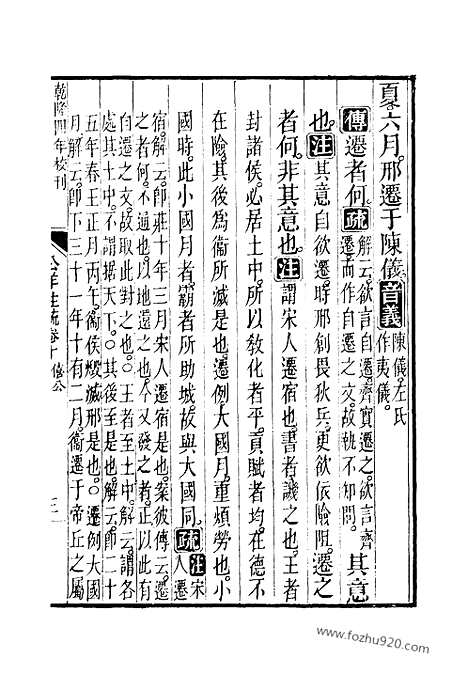 夏六月。邢遷于陳儀。音義陳儀。左氏
作夷儀。
傳遷者何。疏解云。欲言自遷。齊實遷之。欲言齊
遷。而作自遷之文。故執不知問。其意
也。注其意自欲遷。時邢創畏狄兵。更欲依險阻。遷之
者何。非其意也。注謂宋人遷宿也。書者。譏之也。王者
封諸侯。必居土中。所以敎化者平。貢賦者均。在德不
在險。其後爲衞所滅是也。遷例大國月。重煩勞也。小
國時。此小國月者。霸者所助城。故與大國同。疏注宋
人遷
宿。解云。卽莊十年三月宋人遷宿是也。案彼傳云。遷
之者何。不通也。以地還之也。今又發之者。正以此有
自遷之文。故取此對之也。○王者至土中。解云。謂各
處其土中。不謂據天下。○其後至是也。解云。卽二十
五年春王正月丙午。衞侯燬滅邢是也。○遷例大國
月。解云。卽下三十一年十有二月。衞遷于帝丘之屬
乾隆四年校刊
公羊注疏卷十 僖公
www.fozhu920.com